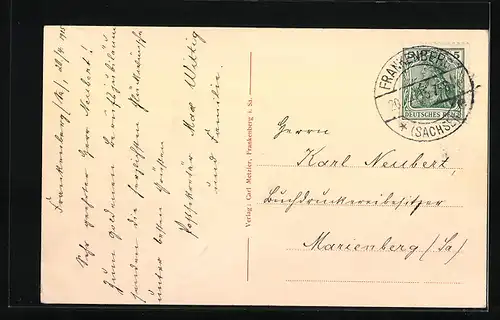 Frankenberg (Sa), 20/4 1915
Sehr geehrter Herr Neubert!
Zum goldenen Berufsjubiläum
senden die herzlichsten Glückwünsche
unter besten Grüßen
Max Wittig
und Familie.
Verlag: Carl Metzler, Frankenberg i. Sa.
FRANKENBERG
* (SACHSEN)
5
DEUTSCHES REICH
Herrn
Karl Neubert,
Buchdruckereibesitzer
Marienberg (Sa)